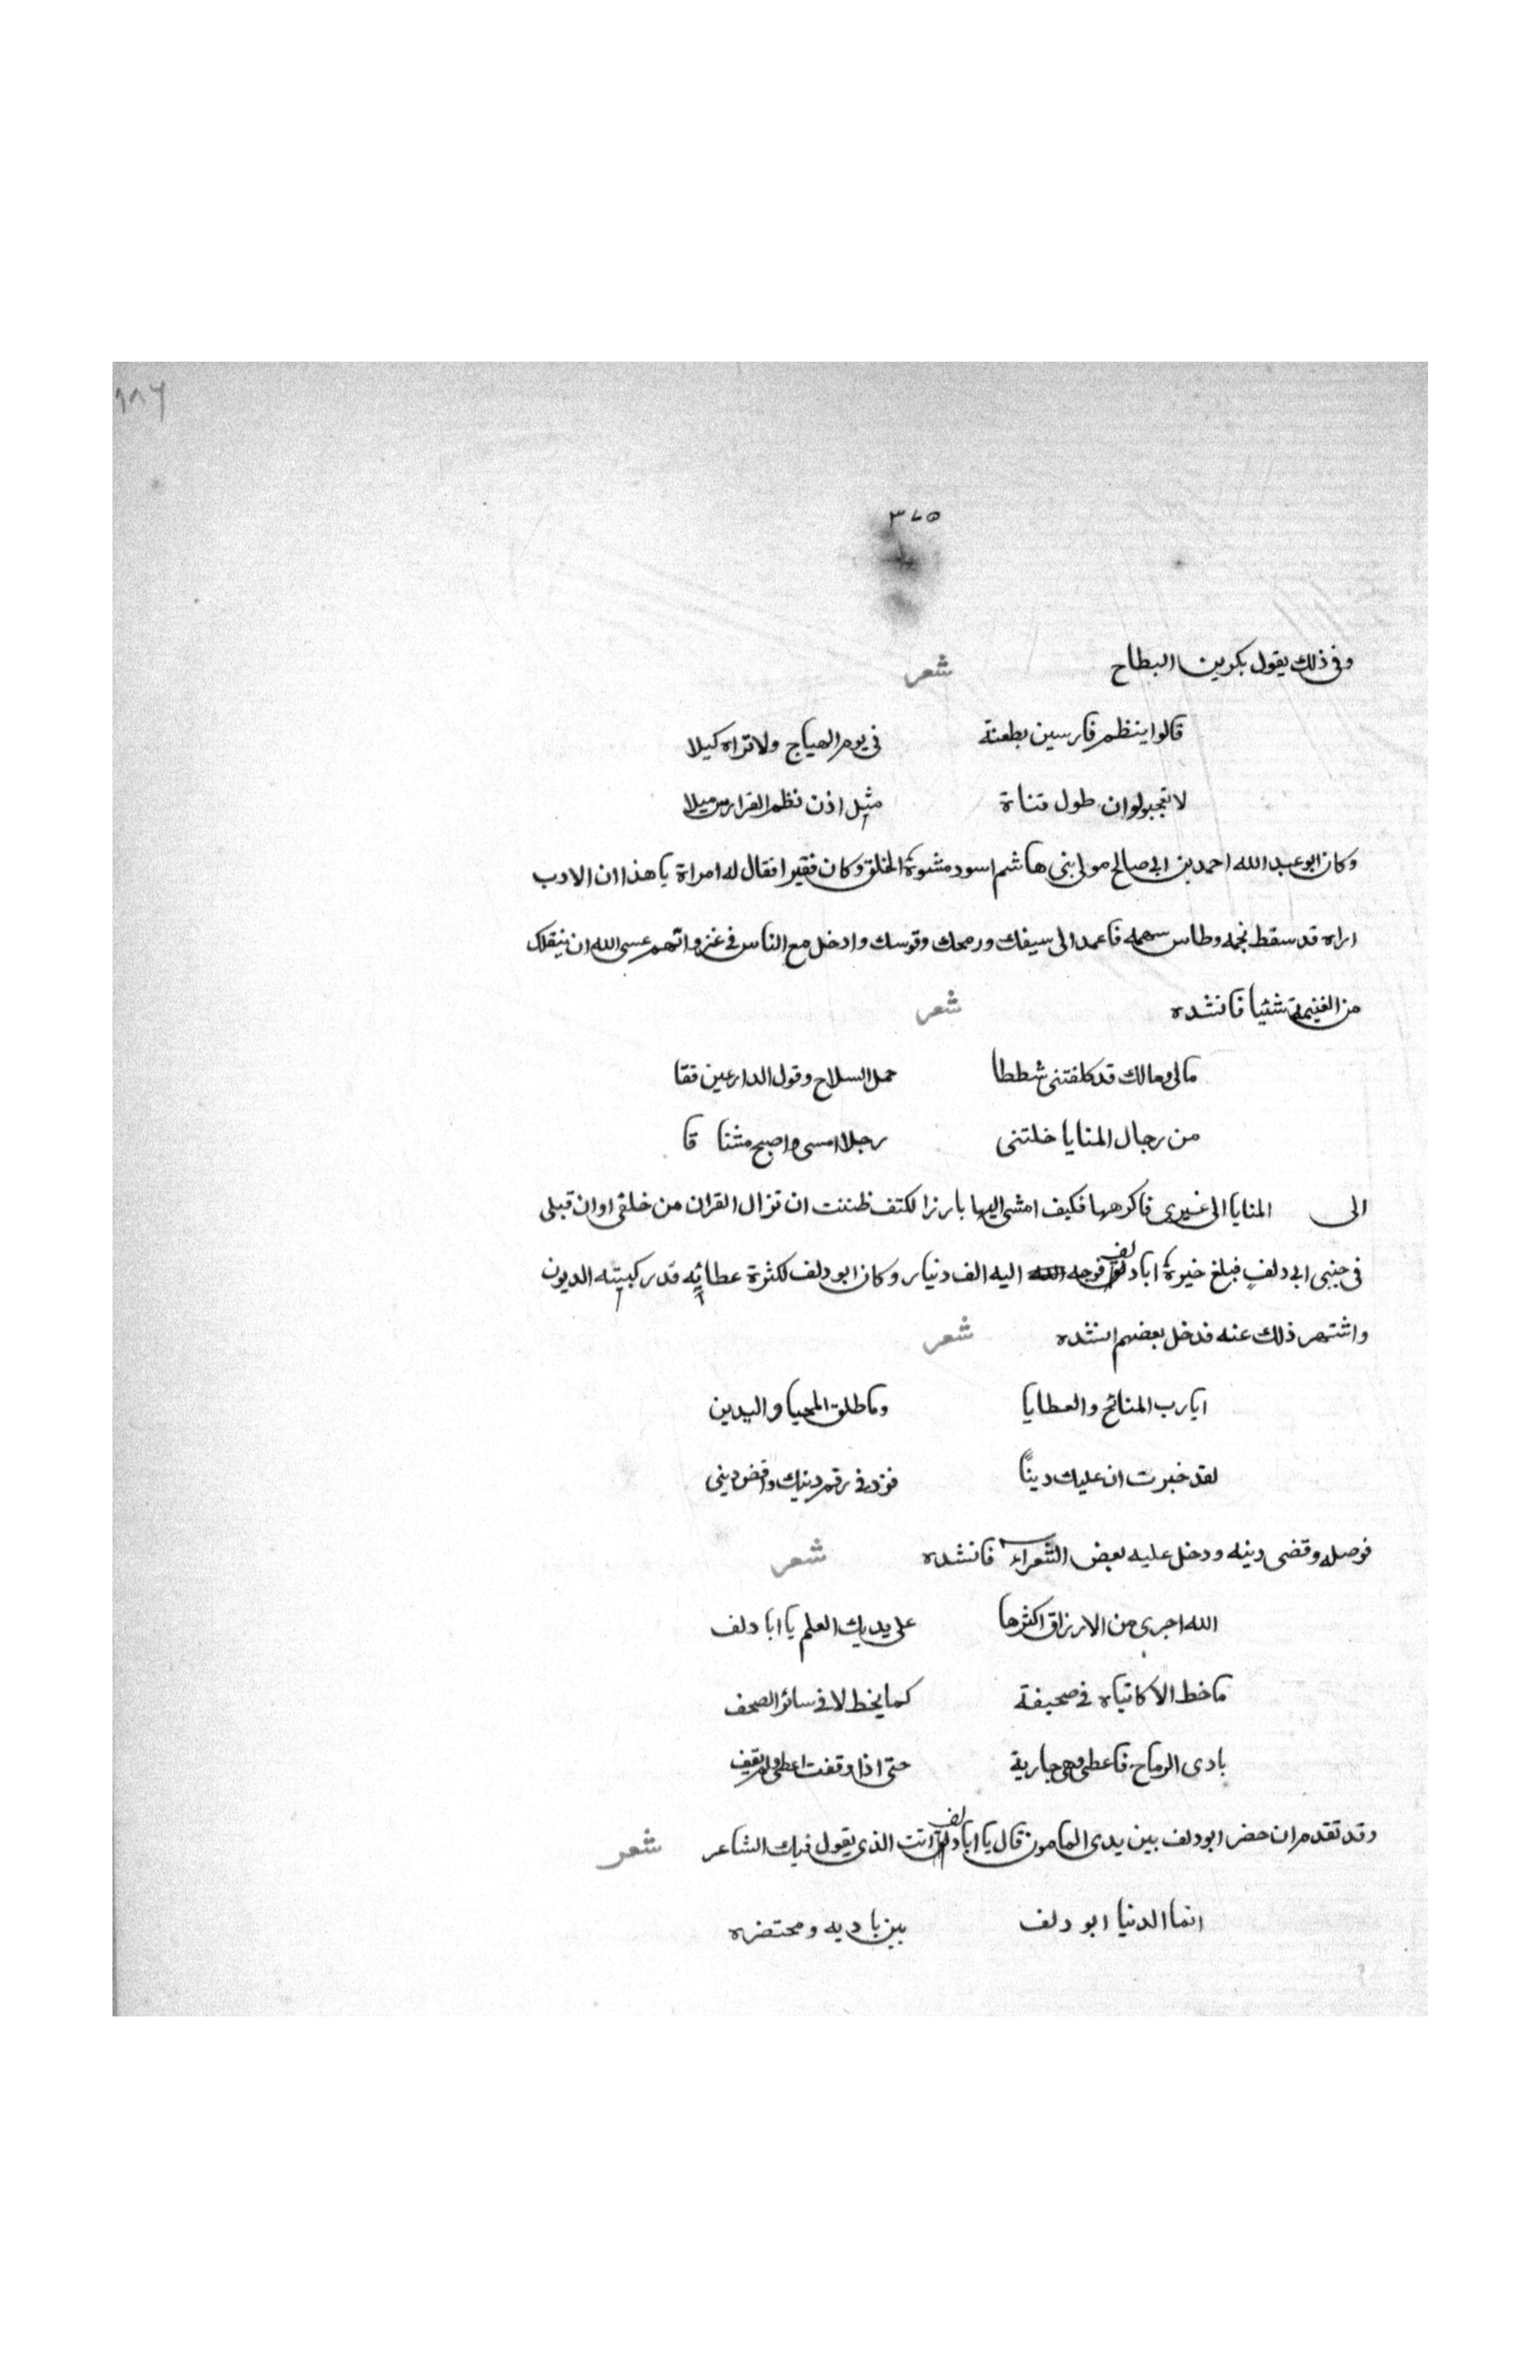 ١٨٦
٣٧٥
وفى ذلك يقول بكر بن البطاح شعر
قالوا ينظم فارسين بطعنة فى يوم الهياج ولا تراه كيلا
لا تعجبوا لو ان طول قناة ميل اذن نظم الفوارس ميلا
وكان ابو عبد الله احمد بن ابى صالح مولى بنى هاشم اسود مشوة الخلق وكان فقيرا فقال له امراة يا هذا ان الادب
اراه قد سقط نجمه وطاس سهمه فاعمد الى سيفك ورمحك وقوسك وادخل مع الناس فى غزواتهم عسى الله ان ينفلك
من الغنيمة شئيا فانشده شعر
مالى ومالك قد كلفتنى شططا حمل السلاح وقول الدارعين فقا
من رجال المنايا خلتنى رجلا امسى واصبح مشتا قا
الى المنايا الى غيرى فاكرهها فكيف امشى اليها بارزا لكتف ظننت ان نزال القران من خلقى اوان قبلى
فى جنبى ابى دلف فبلغ خيرة ابا دلف فوجه اليه الف دنيار وكان ابو دلف لكثرة عطائه قد ركبته الديون
واشتهر ذلك عنه فدخل بعضهم انشده شعر
ايا رب المنائح والعطايا وكا طلق المحيا واليدين
لقد خبرت ان عليك دينًا فزد فى رقم دينك واقض دينى
فوصله وقضى دينه ودخل عليه بعض الشعراء فانشده شعر
الله اجرى من الارزاق اكثرها على يديك العلم يا ابا دلف
ما خط الا كاتباه فى صحيفة كما يخط لا فى سائر الصحف
بادى الرماح فاعطى وهى جارية حتى اذا وقفت اعطى ولم يقف
وقد تقدم ان حضر ابو دلف بين يدى المامون قال يا ابا دلف انت الذى يقول فيك الشاعر شعر
انما الدنيا ابو دلف بين باديه ومحتضره